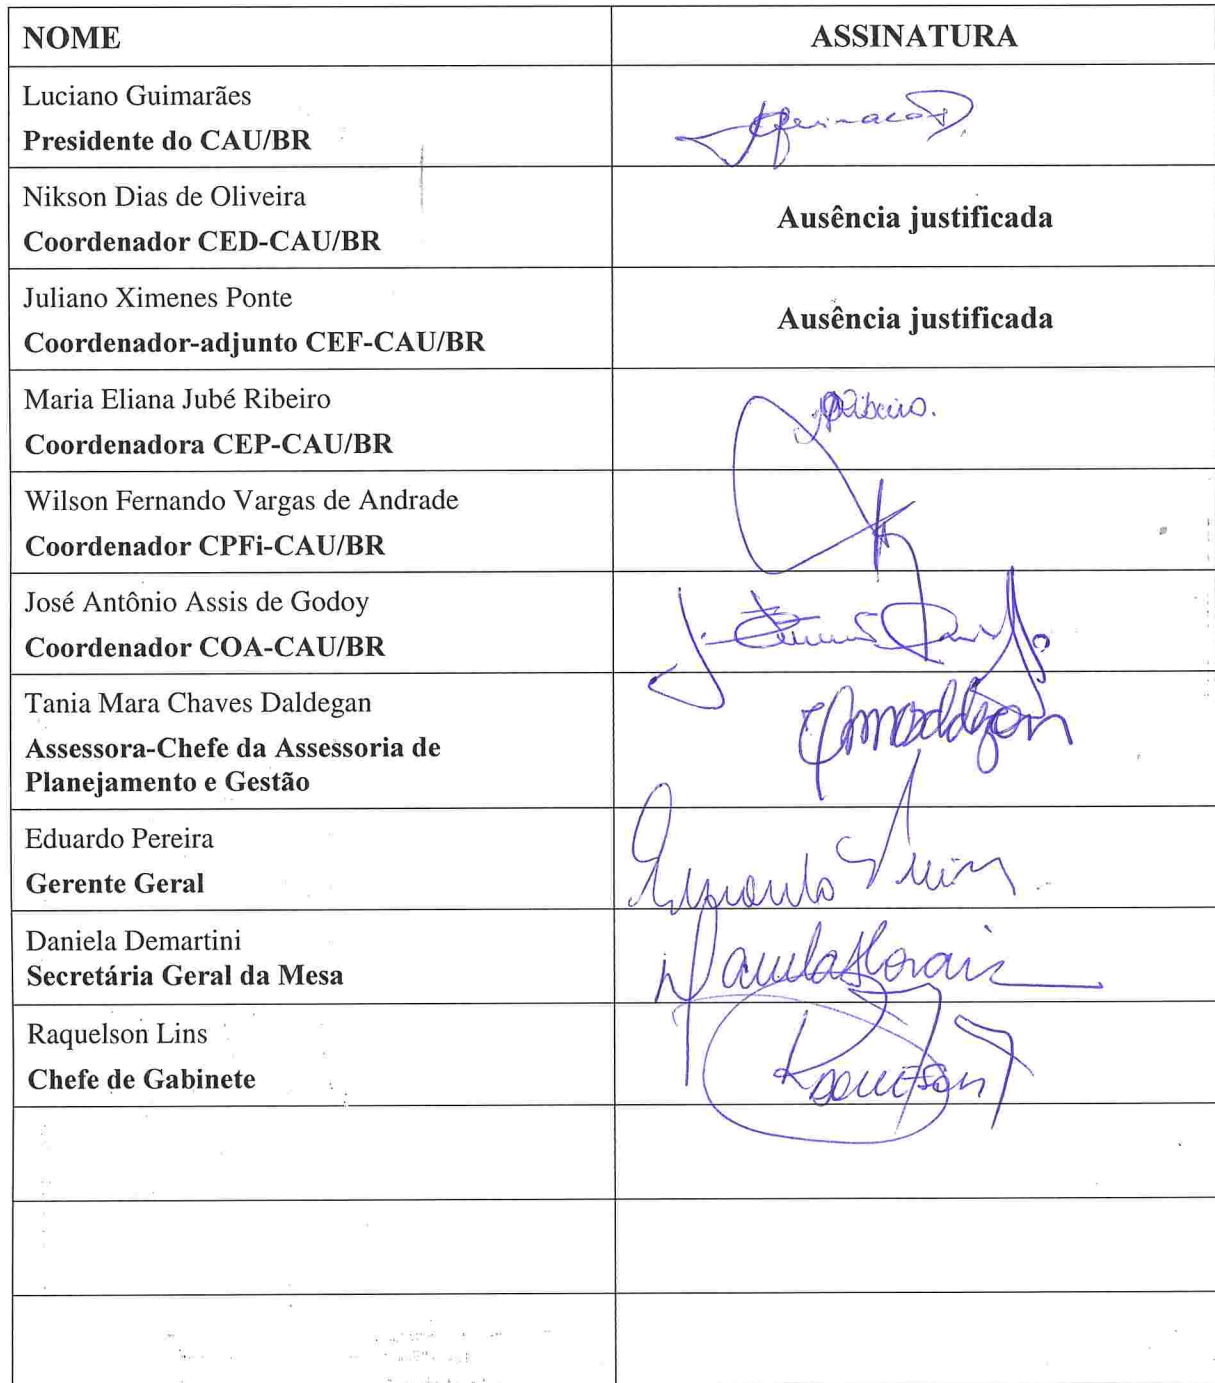 NOME
ASSINATURA
Luciano Guimarães
Presidente do CAU/BR
Nikson Dias de Oliveira
Coordenador CED-CAU/BR
Ausência justificada
Juliano Ximenes Ponte
Coordenador-adjunto CEF-CAU/BR
Ausência justificada
Maria Eliana Jubé Ribeiro
Coordenadora CEP-CAU/BR
Ribeiro.
Wilson Fernando Vargas de Andrade
Coordenador CPFi-CAU/BR
José Antônio Assis de Godoy
Coordenador COA-CAU/BR
Tania Mara Chaves Daldegan
Assessora-Chefe da Assessoria de
Planejamento e Gestão
Eduardo Pereira
Gerente Geral
Daniela Demartini
Secretária Geral da Mesa
Raquelson Lins
Chefe de Gabinete